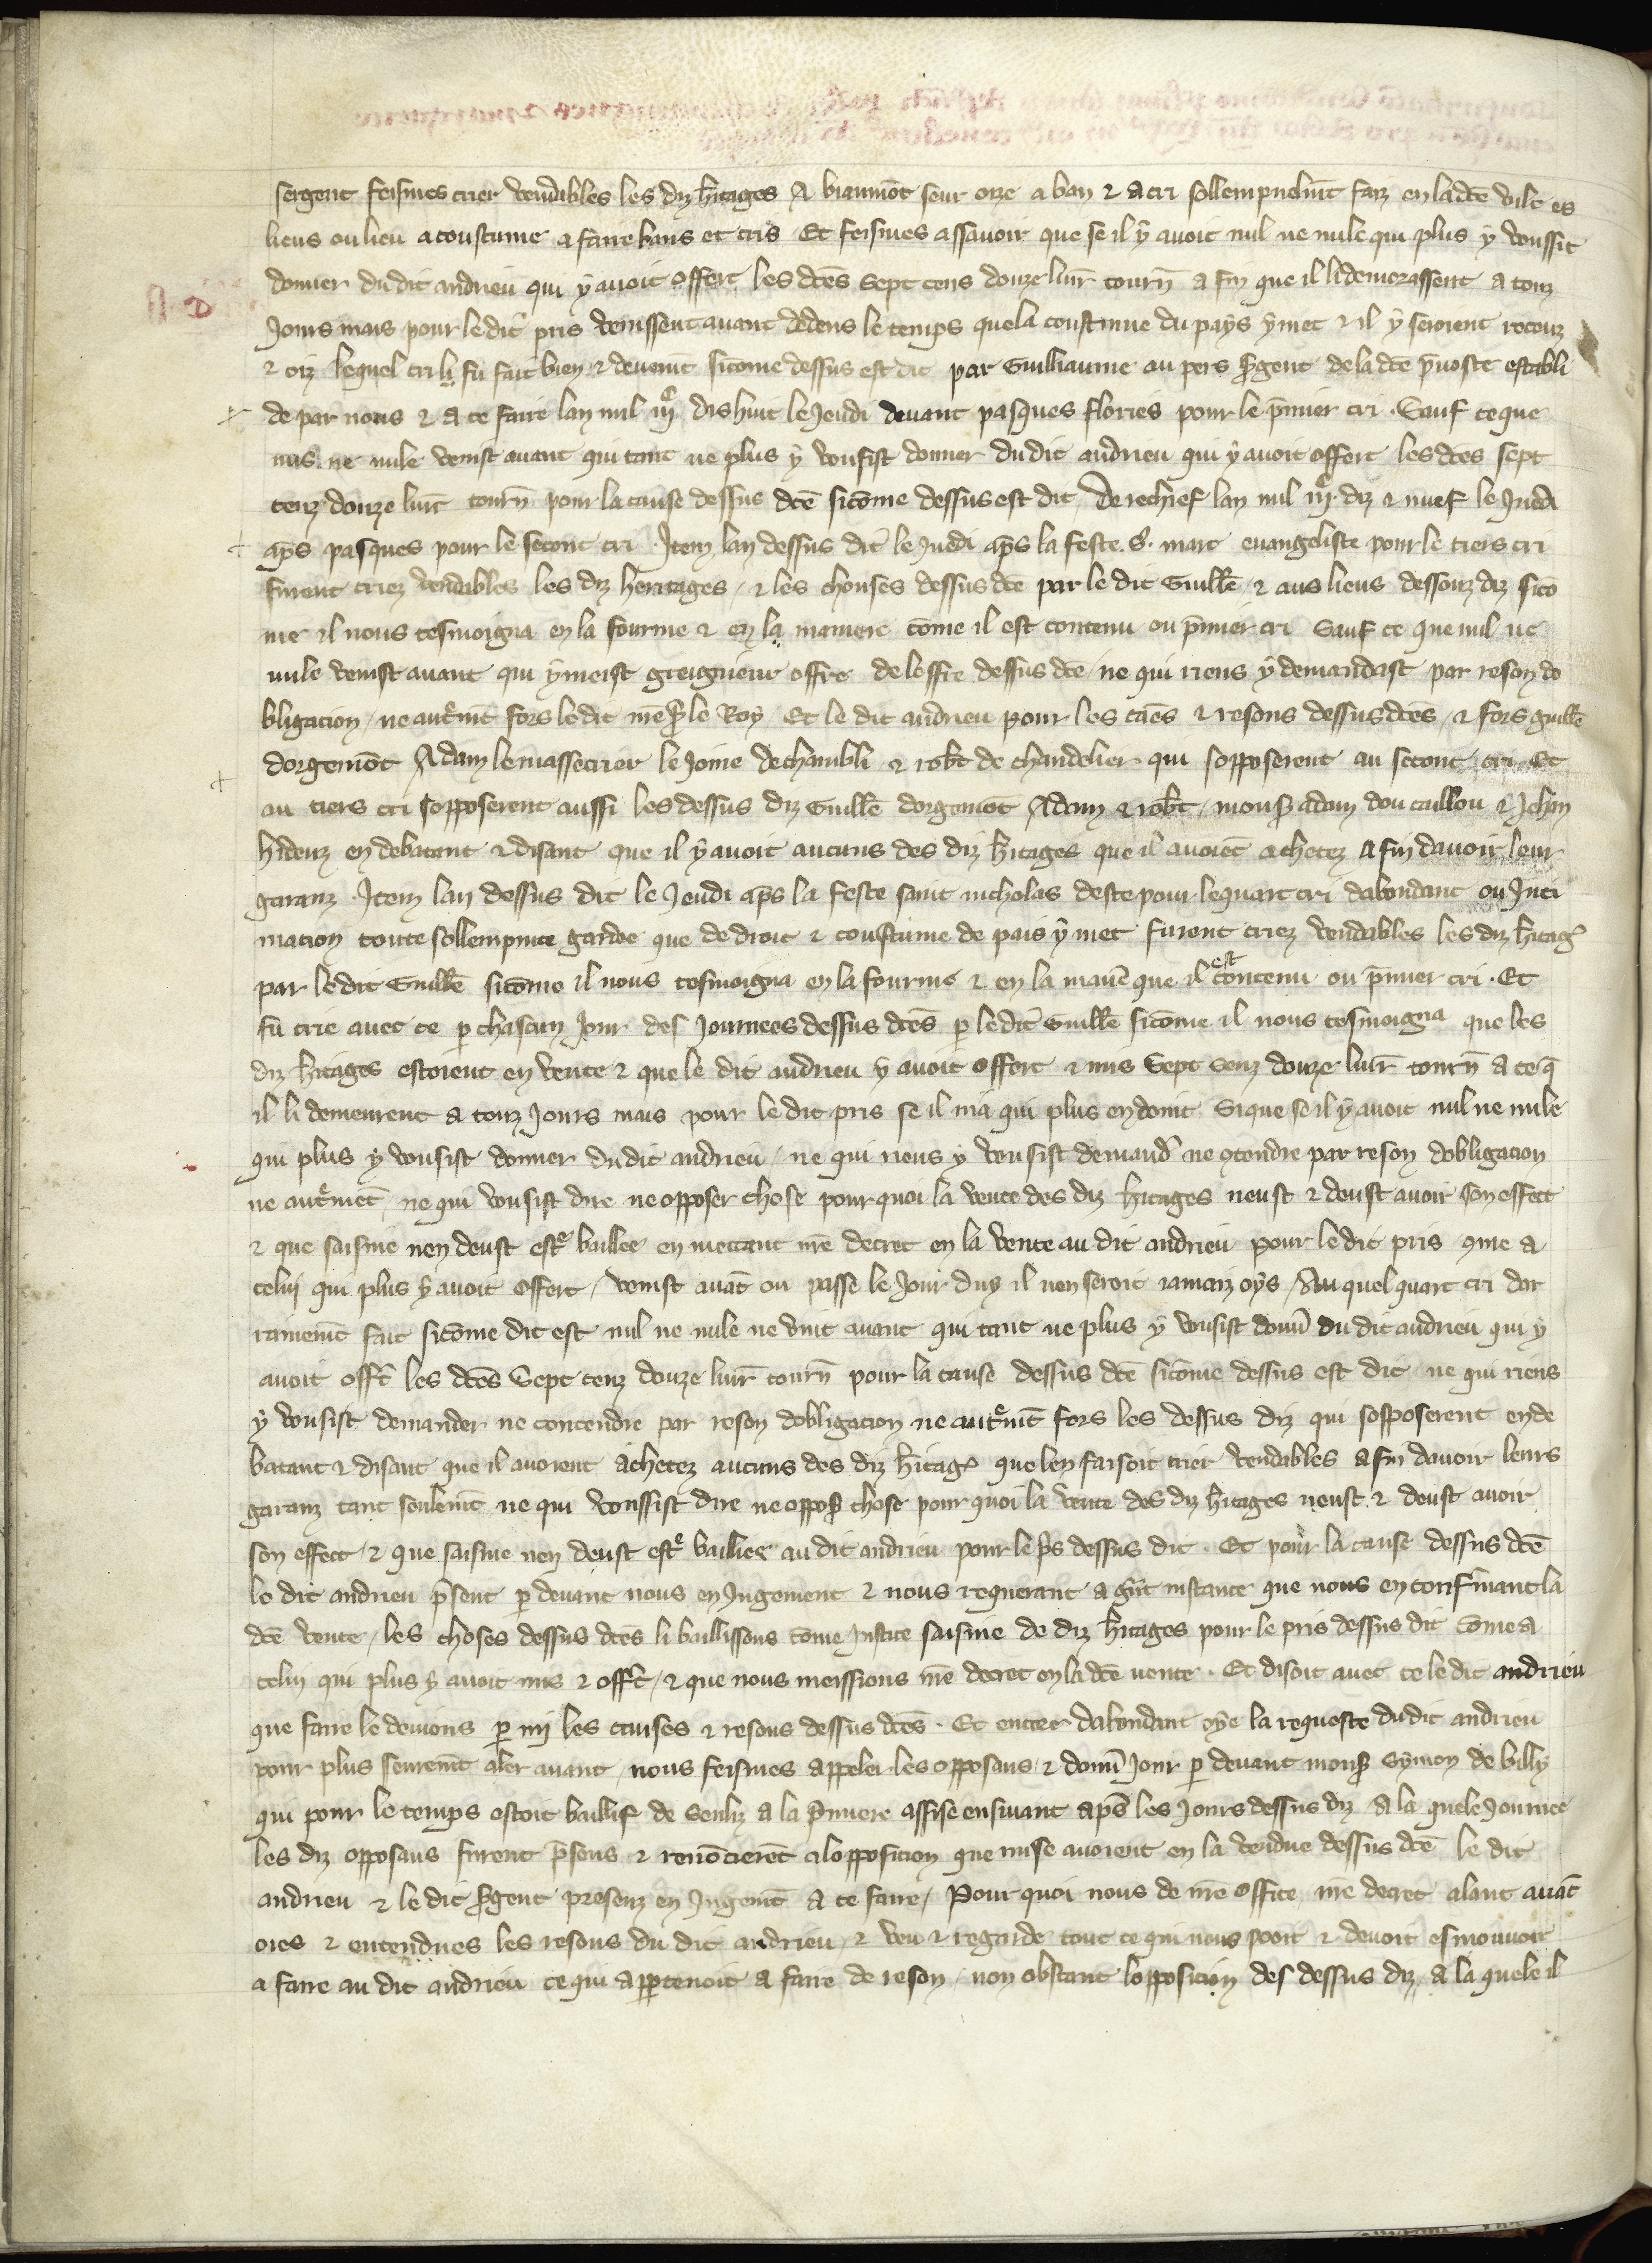 sergent feismes crier vendibles les diz hitages A biaumōt seur oize a ban & a cri sollempnelmt faiz en ladcē vile es
lieus ou lieu acoustume a faire bans et cris Et feismes assavoir que se il y avoit nul ne nule qui plus y voussit
donner du dit andrieu qui y avoit offert les dcēs sept cens douze livr tourn a fin que il li demorassent a touz
Jours mais pour le dit pris venissent avant dedens le temps que la coustume du pays y met & il y seroient receuz
& oiz lequel cri li fu fait bien & deuemt sicōme dessus est dit par Guilliaume au pers sgent de la dcē pvoste establi
de par nous & a ce faire lan mil iijc dishuit le Jeudi devant pasques flories pour le pmier cri . Sauf ce que
nus ne nule venist avant qui tant ne plus y vousist donner du dit andrieu qui y avoit offert les dcēs sept
cenz douze livr tourn pour la cause dessus dcē sicōme dessus est dit De rechief lan mil iijc diz & nuef le Juedi
aps pasques pour le secont cri . Item lan dessus dit le Juedi aps la feste . S . marc evangeliste pour le tiers cri
furent criez vendables les diz heritages / & les chouses dessus dcē par le dit Guillē & aus lieus dessouz diz sicō
me il nous tesmoigna en la fourme & en la maniere cōme il est contenu ou pmier cri Sauf ce que nul ne
nule venist avant qui y meist greigneur offre de loffre dessus dcē / ne qui riens y demandast par reson do
bligacion / ne autmt fors le dit mē p le Roy / Et le dit andrieu pour les caēs & resons dessus dcēs / & fors guillē
dorgemōt Adam le masseerier le Joine de chambli & robt de chandelier qui sopposerent au secont cri Et
au tiers cri sopposerent aussi les dessus diz Guillē dorgemōt Adam & robt / mons adam dou caillou & Jehan
hideuz en debatant & disant que il y avoit aucuns des diz hitages que il avoiēt achetez A fin davoir leur
garanz . Item lan dessus dit le Jeudi aps la feste saint nicholas deste pour le quart cri dabondant ou Inti
macion toute sollempnite gardee que de droit & coustume de pais y met furent criez vendables les diz hitag
par le dit Guillē sicōme il nous tesmoigna en la fourme & en la manē que il est contenu ou pmier cri . Et
fu crie avec ce p chascun Jour des Journees dessus dcēs p le dit Guillē sicōme il nous tesmoigna que les
diz hitages estoient en vente & que le dit andrieu y avoit offert & mis Sept cenz douze livr tourn a ce q
il li demeurent a touz Jours mais pour le dit pris se il nia qui plus en doint Si que se il y avoit nul ne nule
qui plus y vousist donner du dit andrieu / ne qui riens y vousist demand ne ꝯtendre par reson dobligacion
ne autmēt / ne qui vousist dire ne opposer chose pour quoi la vente des diz hitages neust & deust avoir son effect
& que saisine nen deust est baillee en mettant nrē decret en la vente au dit andrieu pour le dit pris ꝯme a
celui qui plus y avoit offert / venist avāt ou passe le Jour duy il nen seroit iamaiz oys / Au quel quart cri dar
rainemt fait sicōme dit est nul ne nule ne vint avant qui tant ne plus y vousist donn du dit andrieu qui y
avoit offt les dcēs Sept cenz douze livr tourn pour la cause dessus dcē sicōme dessus est dit ne qui riens
y vousist demander ne contendre par reson dobligacion ne autmt fors les dessus diz qui sosposerent en de
batant & disant que il avoient achetez aucuns des diz hitag que len faisoit crier vendables a fin davoir leurs
garanz tant soulemt ne qui voussist dire ne oppos chose pour quoi la vente des diz hitages neust & deust avoir
son effect & que saisine nen deust est baillier au dit andrieu pour le ps dessus dit . Et pour la cause dessus dcē
le dit andrieu psent p devant nous en Jugement & nous requerant a gnt instance que nous en confmant la
dcē vente / les choses dessus dcēs li baillissons cōme Justice saisine de diz hitages pour le pris dessus dit cōme a
celui qui plus y avoit mis & offt / & que nous meissions nrē decret en la dcē vente . Et disoit avec ce le dit andrieu
que faire le devions p mi les causes & resons dessus dcēs . Et encor dabondant oye la requeste du dit andrieu
pour plus seuremt aler avant / nous feismes appeler les opposans & donn Jour p devant mons Symon de billy
qui pour le temps estoit baillif de Senliz a la pmiere assise ensivant aps les Jours dessus diz A la quele Journee
les diz opposans furent psens & renōcierēt a lopposicion que mise avoient en la vendue dessus dcē le dit
andrieu & le dit sgent presenz en Jugemt a ce faire / Pour quoi nous de nrē office nrē decret alant avāt
oies & entendues les resons du dit andrieu / & veu & regarde tout ce qui nous pooit & devoit esmouvoir
a faire au dit andrieu ce qui appartenoit a faire de reson / non obstant lopposicion des dessus diz / a la quele il